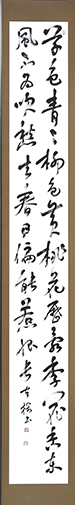 草色青〻柳色黄桃花歷亂李花香東
風不為吹愁去春日偏能惹恨長